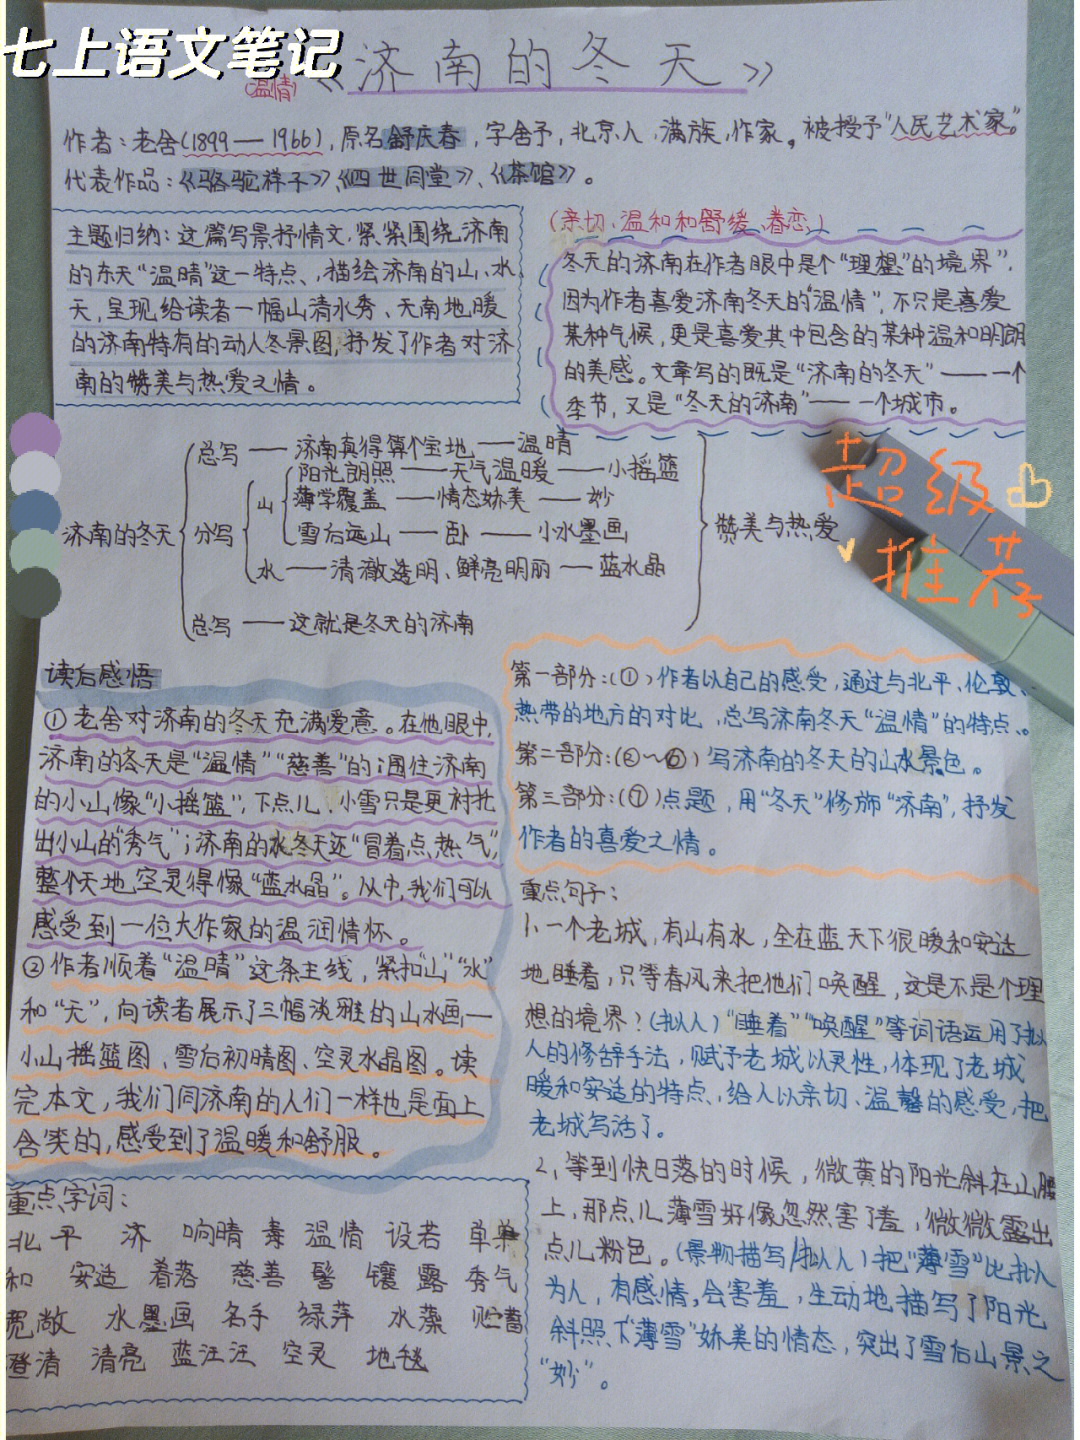 七上语文笔记
《济南的冬天》
(温情)
作者：老舍(1899—1966)，原名舒庆春，字舍予，北京人，满族，作家。被授予"人民艺术家"。
代表作品：《骆驼祥子》、《四世同堂》、《茶馆》。
主题归纳：这篇写景抒情文，紧紧围绕济南
的东天"温晴"这一特点、，描绘济南的山、水、
天，呈现给读者一幅山清水秀、天南地暖
的济南特有的动人冬景图，抒发了作者对济
南的赞美与热爱之情。
(亲切、温和和舒缓、眷恋)
冬天的济南在作者眼中是个"理想"的境界"，
因为作者喜爱济南冬天的"温情"，不只是喜爱
某种气候，更是喜爱其中包含的某种温和明朗
的美感。文章写的既是"济南的冬天"——一个
季节，又是"冬天的济南"——一个城市。
总写——济南真得算个宝地——温晴
阳光朗照——天气温暖——小摇篮
山 薄学覆盖——情态娇美——妙
济南的冬天 分写 雪后远山——卧——小水墨画 赞美与热爱
水——清澈透明、鲜亮明丽——蓝水晶
总写——这就是冬天的济南
超级
推荐
读后感悟
①老舍对济南的冬天充满爱意。在他眼中，
济南的冬天是"温情""慈善"的；围住济南
的小山像"小摇篮"，下点儿小雪只是更衬托
出小山的"秀气"；济南的水冬天还"冒着点热气"，
整个天地空灵得像"蓝水晶"。从中，我们可以
感受到一位大作家的温润情怀。
②作者顺着"温晴"这条主线，紧扣"山""水"
和"天"，向读者展示了三幅淡雅的山水画—
小山摇篮图、雪后初晴图、空灵水晶图。读
完本文，我们同济南的人们一样也是面上
含笑的，感受到了温暖和舒服。
第一部分：(①)作者以自己的感受，通过与北平、伦敦、
热带的地方的对比，总写济南冬天"温情"的特点。
第二部分：(②～⑥)写济南的冬天的山水景色。
第三部分：(⑦)点题，用"冬天"修饰"济南"，抒发
作者的喜爱之情。
重点句子：
1、一个老城，有山有水，全在蓝天下很暖和安适
地睡着，只等春风来把他们唤醒，这是不是个理
想的境界？(拟人)"睡着""唤醒"等词语运用了拟
人的修辞手法，赋予老城以灵性，体现了老城
暖和安适的特点，给人以亲切、温馨的感受，把
老城写活了。
2、等到快日落的时候，微黄的阳光斜在山腰
上，那点儿薄雪好像忽然害了羞，微微露出
点儿粉色。(景物描写/拟人)把"薄雪"比拟
为人，有感情，会害羞，生动地描写了阳光
斜照下"薄雪"娇美的情态，突出了雪后山景之
"妙"。
重点字词：
北平 济 响晴 毒 温情 设若 单单
和 安适 着落 慈善 髻 镶 露 秀气
宽敞 水墨画 名手 绿萍 水藻 贮蓄
澄清 清亮 蓝汪汪 空灵 地毯